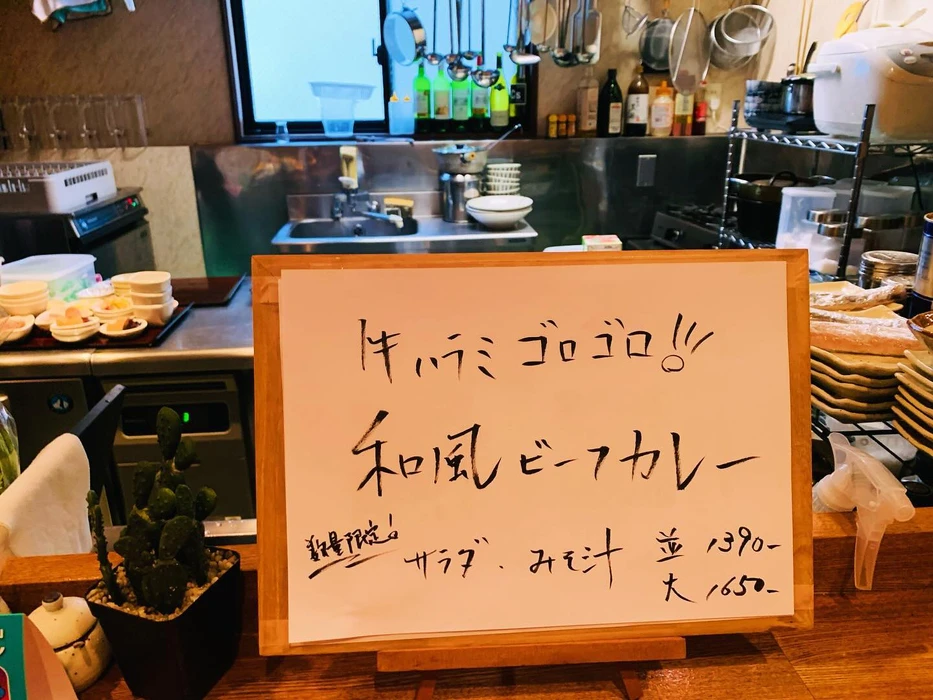 牛ハラミゴロゴロ!!!
和風ビーフカレー
数量限定!
サラダ、みそ汁 並 1390-
大 1650-